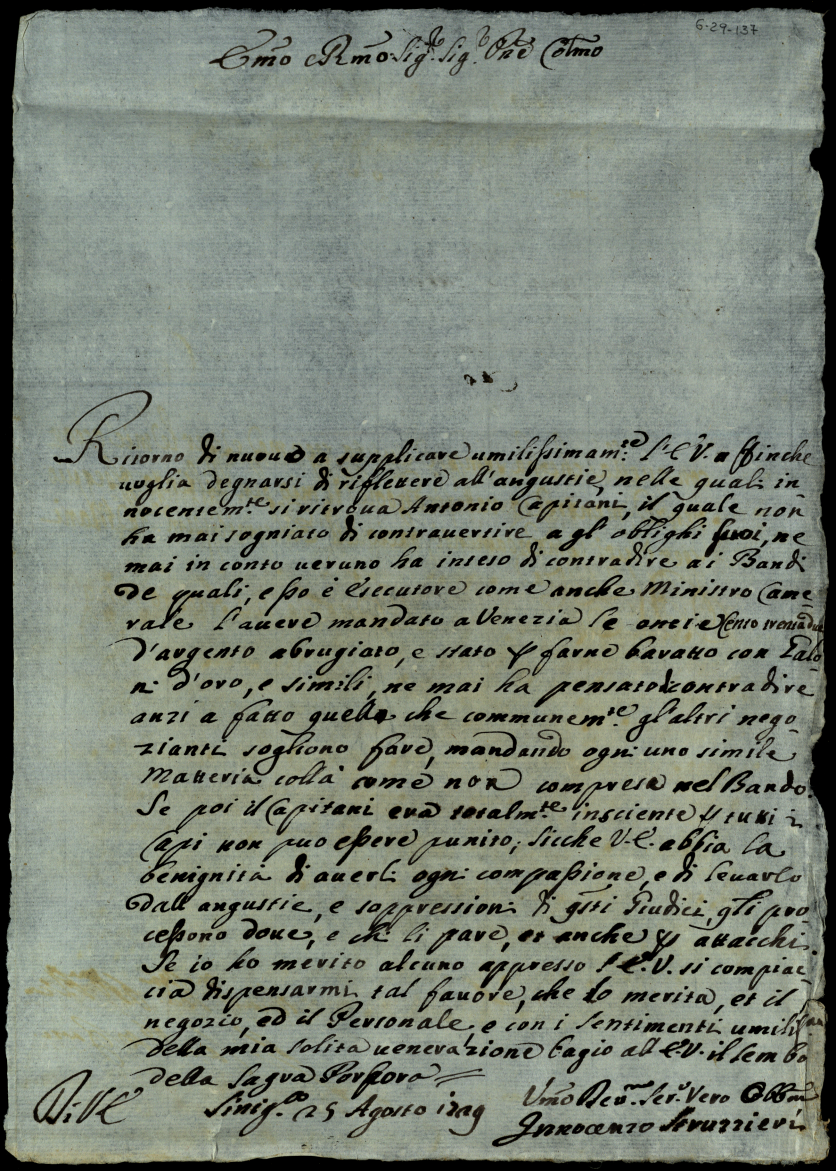 6-29-137
Emo e Rmo Sigr. Sigr. Pne Colmo
Ritorno di nuouo a supplicare umilissimamte. l'E.V. affinche
uoglia degnarsi di riflettere all'angustie, nelle quali in
nocentemte. si ritroua Antonio Capitani, il quale non
ha mai sogniato di contrauertire a gl'oblighi suoi, ne
mai in conto ueruno ha inteso di contradire ai Bandi
de quali, esso è Esecutore come anche Ministro Came-
rale l'auere mandato a Venezia le oncie Cento trentadue
d'argento abrugiato, e stato p farne baratto con
ni d'oro, e simili, ne mai ha pensato contradire
anzi a fatto quello che communemte. gl'altri nego
zianti sogliono fare, mandando ogni uno simile
Matteria colà come non compresa nel Bando.
Se poi il Capitani era totalmte. insciente p tutti i
Capi non puo essere punito; sicche V.E. abbia la
benignità di auerli ogni compassione, e di leuarlo
dall angustie, e soppressioni di qsti Giudici, gli pro
cessono doue, e chi li pare, et anche p attacchi.
Se io ho merito alcuno appresso l'E.V. si compiac-
cia dispensarmi tal fauore, che lo merita, et il
negozio, ed il Personale, e con i sentimenti umilissi
della mia solita uenerazione bagio all E.V. il lembo
della Sagra Porpora
Di VE Sinig.a 25 Agosto 1729 Umo Deu.mo Ser.e Vero Obbmo
Innocenzo Struzzieri